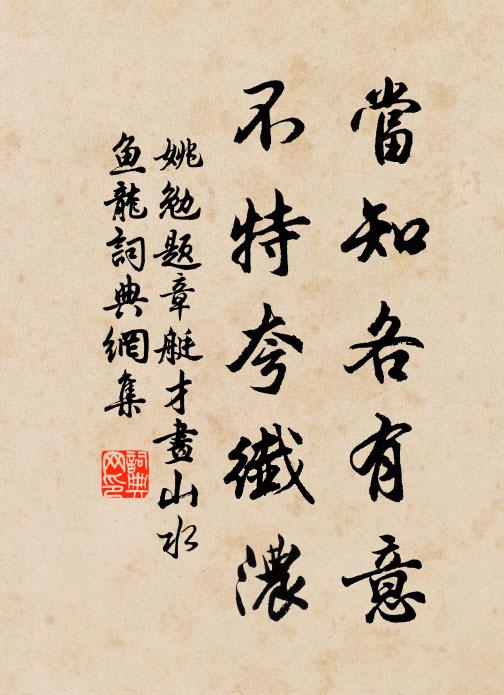 當知各有意
不特夸纖濃
姚勉題章艇才畫山水
鱼龍詞典網集
詞典网印